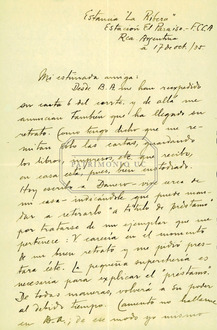 Estancia "La Ribera"
Estación El Paraíso - F.C.C.A.
Rca Argentina
a 17 de oct/35
Mi estimada amiga:
Desde B.A. me han reexpedido
su carta 6 del corrte, y de allá me
anuncian también que ha llegado su
retrato. Como tengo dicho que me re-
mitan sólo las cartas, guardando
los libros, impresos etc que recibo,
en casa está, pues, bien custodiado.
Hoy escribo a
mi casa indicándole que puede man-
dar a retirarlo "a título de préstamo"
por tratarse de un ejemplar que me
pertenece: Y carecía en el momento
de un buen retrato y me pidió pres-
tara éste. La pequeña superchería es
necesaria para explicar el "préstamo".
De todas maneras, volverá a su poder
al debido tiempo. Lamento no hallarme
en B.A.; de ese modo yo mismo
PATRIMONIO